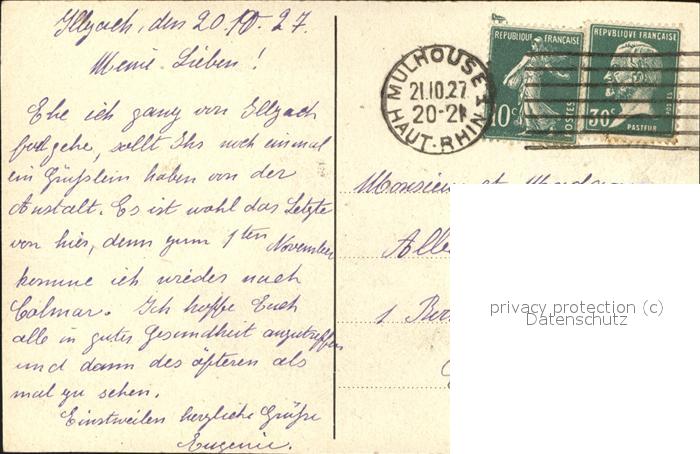 Illzach, den 20.10.27.
Meine Lieben!
Ehe ich ganz von Illzach
fortgehe, sollt Ihr noch einmal
ein Grüßlein haben von der
Anstalt. Es ist wohl das Letzte
von hier, denn zum 1ten November
komme ich wieder nach
Colmar. Ich hoffe Euch
alle in guter Gesundheit anzutreffen
und dann des öfteren als
mal zu sehen.
Einstweilen herzliche Grüße
Eugenie.
MULHOUSE 1
21.10.27
20-21
HAUT-RHIN
REPUBLIQUE FRANÇAISE
10c
POSTES
REPUBLIQUE FRANÇAISE
30c
POSTES
PASTEUR
Monsieur et Madame
Alle
1
privacy protection (c)
Datenschutz